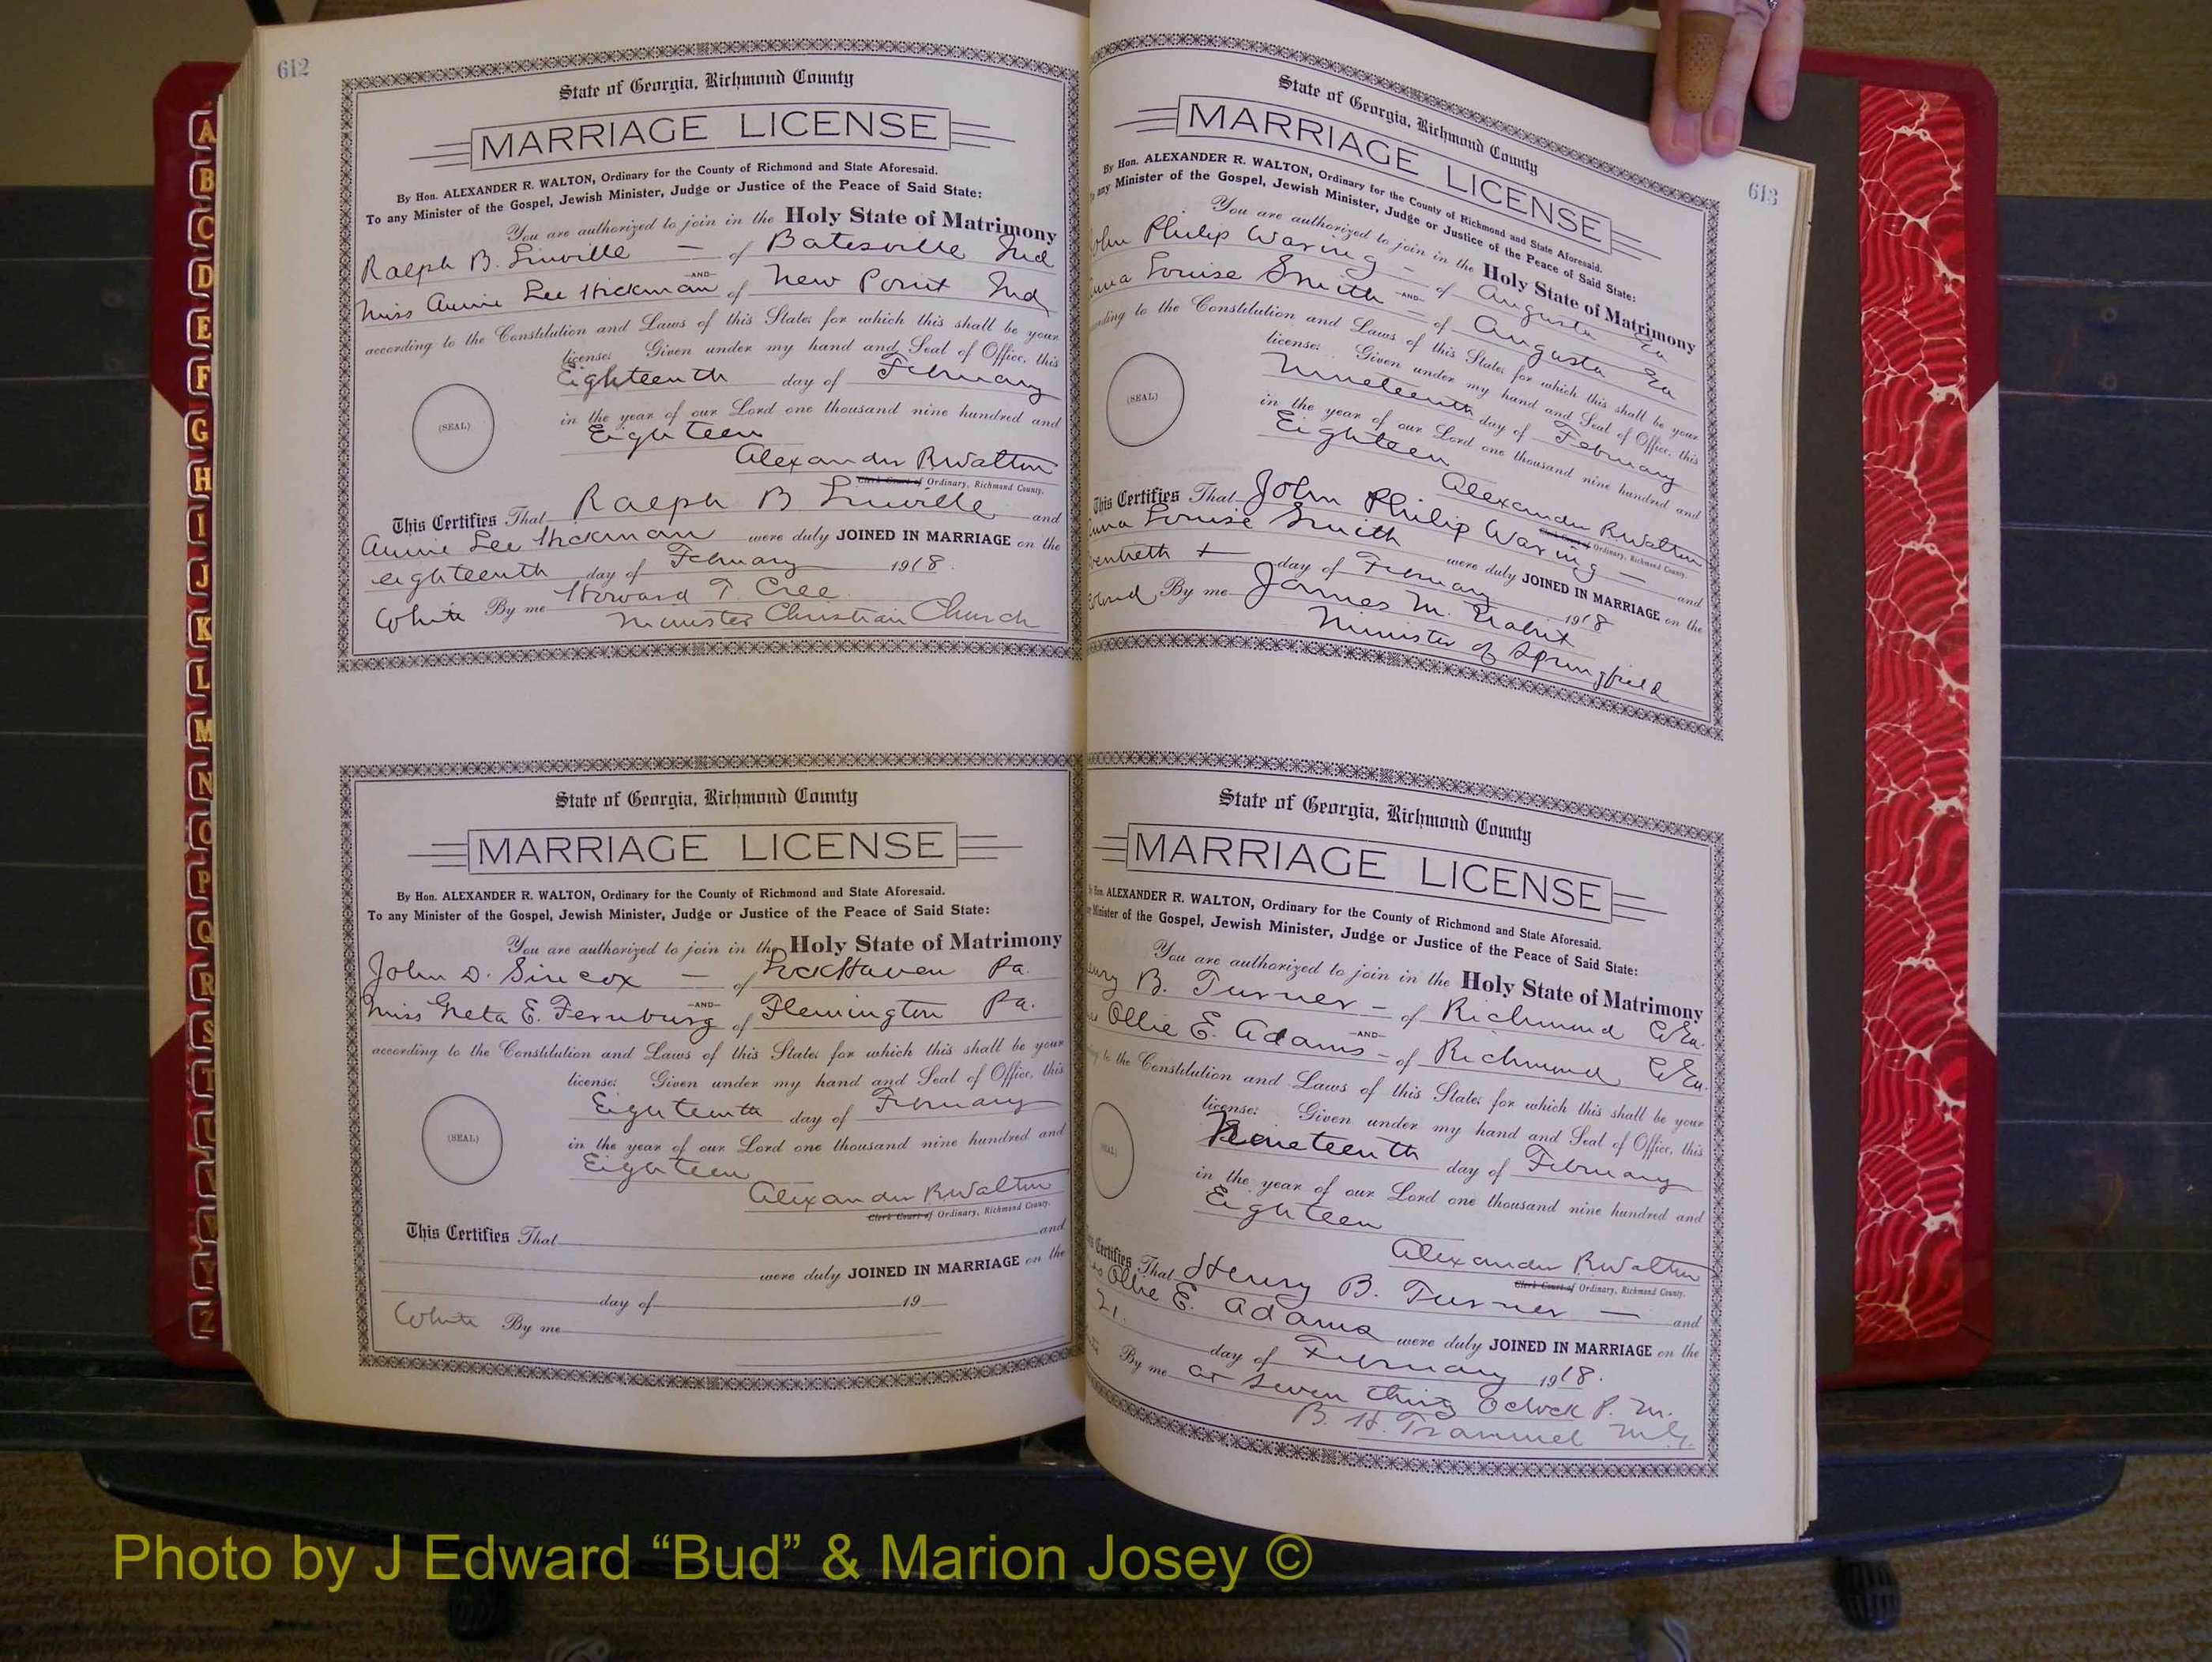 612
State of Georgia, Richmond County
MARRIAGE LICENSE
By Hon. ALEXANDER R. WALTON, Ordinary for the County of Richmond and State Aforesaid.
To any Minister of the Gospel, Jewish Minister, Judge or Justice of the Peace of Said State:
You are authorized to join in the Holy State of Matrimony
Ralph B. Linville — of Batesville Ind
—AND—
Miss Annie Lee Hickman of New Point Ind
according to the Constitution and Laws of this State; for which this shall be your
license: Given under my hand and Seal of Office, this
Eighteenth day of February
(SEAL)
in the year of our Lord one thousand nine hundred and
Eighteen
Alexander R Walton
Clerk Court of Ordinary, Richmond County.
This Certifies That Ralph B Linville and
Annie Lee Hickman were duly JOINED IN MARRIAGE on the
eighteenth day of February 1918.
White By me Howard T. Cree
Minister Christian Church
State of Georgia, Richmond County
MARRIAGE LICENSE
By Hon. ALEXANDER R. WALTON, Ordinary for the County of Richmond and State Aforesaid.
To any Minister of the Gospel, Jewish Minister, Judge or Justice of the Peace of Said State:
You are authorized to join in the Holy State of Matrimony
John D. Sincox — of Lock Haven Pa.
—AND—
Miss Greta E. Fernburg of Flemington Pa.
according to the Constitution and Laws of this State; for which this shall be your
license: Given under my hand and Seal of Office, this
Eighteenth day of February
(SEAL)
in the year of our Lord one thousand nine hundred and
Eighteen
Alexander R Walton
Clerk Court of Ordinary, Richmond County.
This Certifies That and
were duly JOINED IN MARRIAGE on the
day of 19
White By me
613
State of Georgia, Richmond County
MARRIAGE LICENSE
By Hon. ALEXANDER R. WALTON, Ordinary for the County of Richmond and State Aforesaid.
any Minister of the Gospel, Jewish Minister, Judge or Justice of the Peace of Said State:
You are authorized to join in the Holy State of Matrimony
John Philip Waring — of Augusta Ga
—AND—
Anna Louise Smith — of Augusta Ga
according to the Constitution and Laws of this State; for which this shall be your
license: Given under my hand and Seal of Office, this
Nineteenth day of February
(SEAL)
in the year of our Lord one thousand nine hundred and
Eighteen
Alexander R Walton
Clerk Court of Ordinary, Richmond County.
This Certifies That John Philip Waring — and
Anna Louise Smith were duly JOINED IN MARRIAGE on the
day of February 1918
By me James M.
Minister of Springfield
State of Georgia, Richmond County
MARRIAGE LICENSE
By Hon. ALEXANDER R. WALTON, Ordinary for the County of Richmond and State Aforesaid.
Minister of the Gospel, Jewish Minister, Judge or Justice of the Peace of Said State:
You are authorized to join in the Holy State of Matrimony
Henry B. Turner — of Richmond Co Ga.
—AND—
Ollie E. Adams — of Richmond Co Ga.
to the Constitution and Laws of this State; for which this shall be your
license: Given under my hand and Seal of Office, this
Nineteenth day of February
(SEAL)
in the year of our Lord one thousand nine hundred and
Eighteen
Alexander R Walton
Clerk Court of Ordinary, Richmond County.
Certifies That Henry B. Turner — and
Ollie E. Adams were duly JOINED IN MARRIAGE on the
21. day of February 1918.
By me at seven thirty Oclock P. M.
B. H. Trammel M.G.
A
B
C
D
E
F
G
H
I
J
K
L
M
N
O
P
Q
R
S
T
U
V
W
Y
Z
Photo by J Edward “Bud” & Marion Josey ©